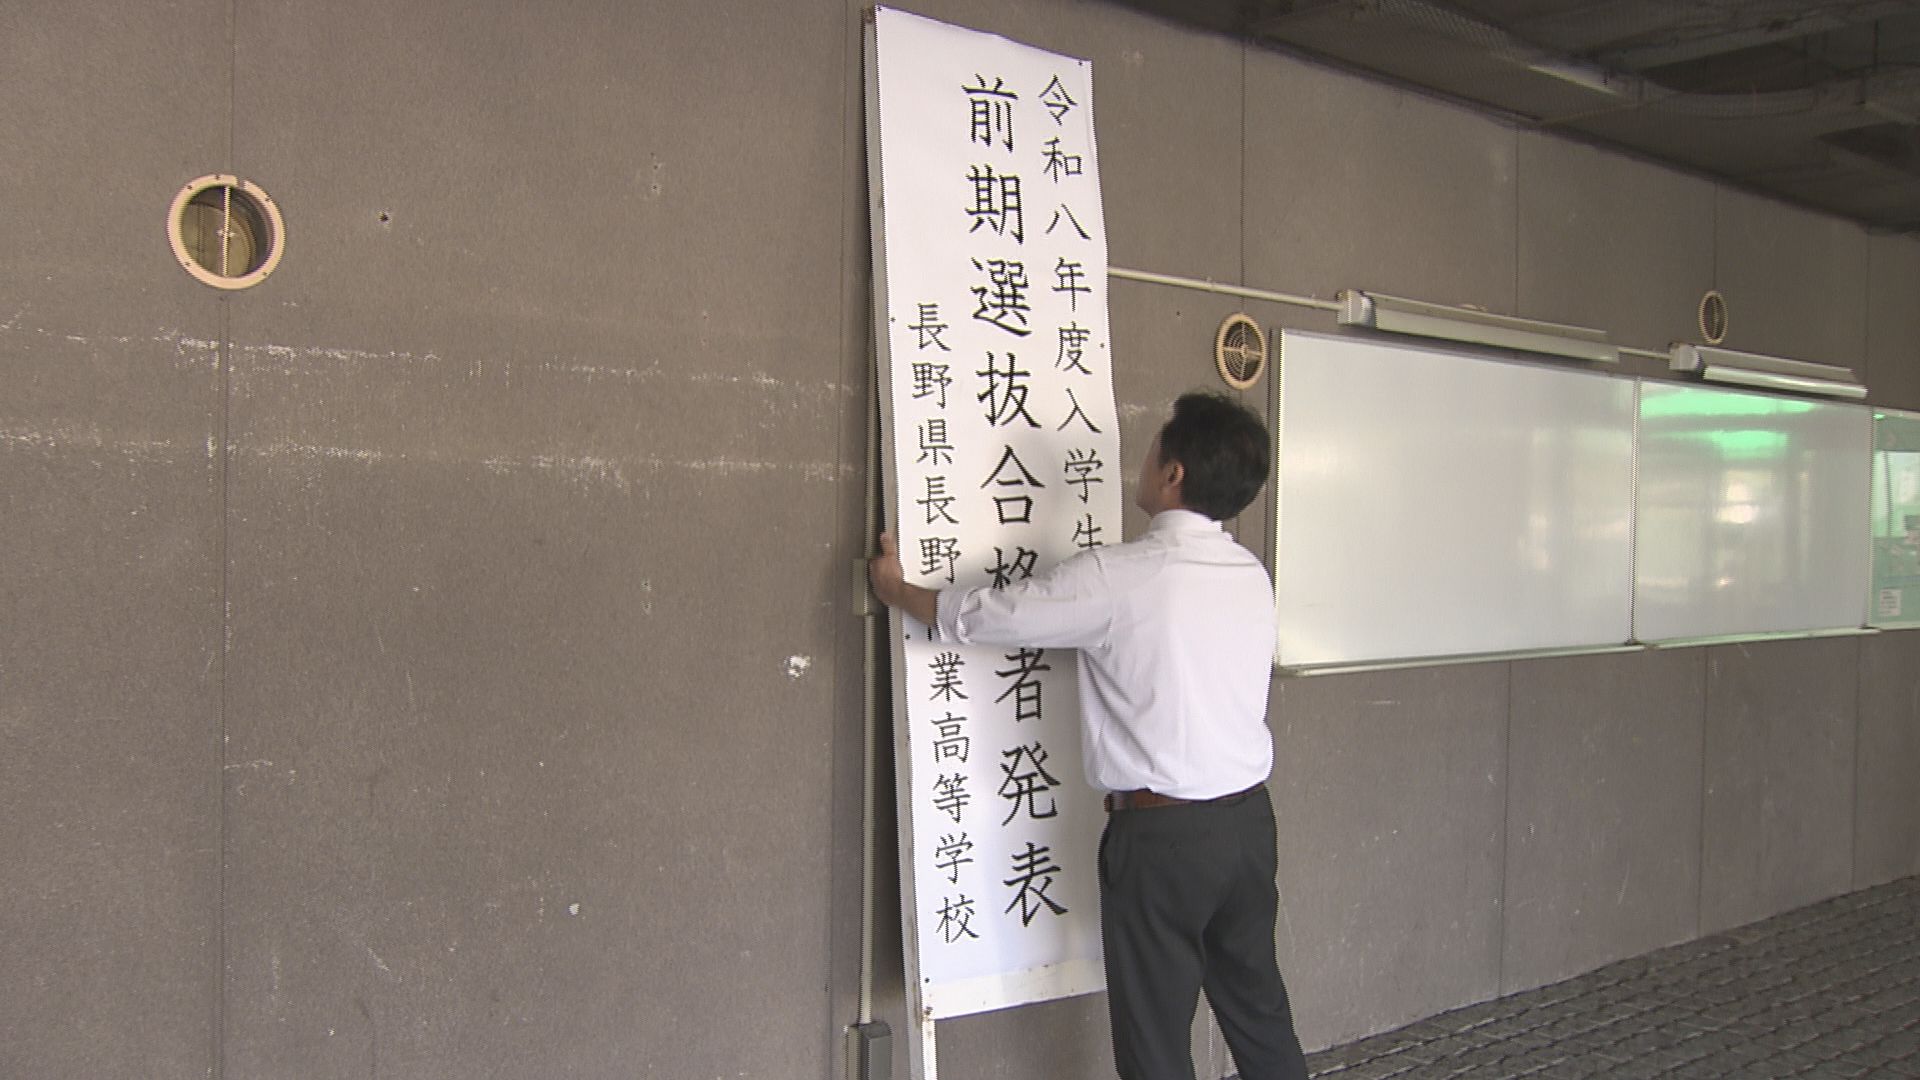 令和八年度入学生
前期選抜合格者発表
長野県長野 業高等学校